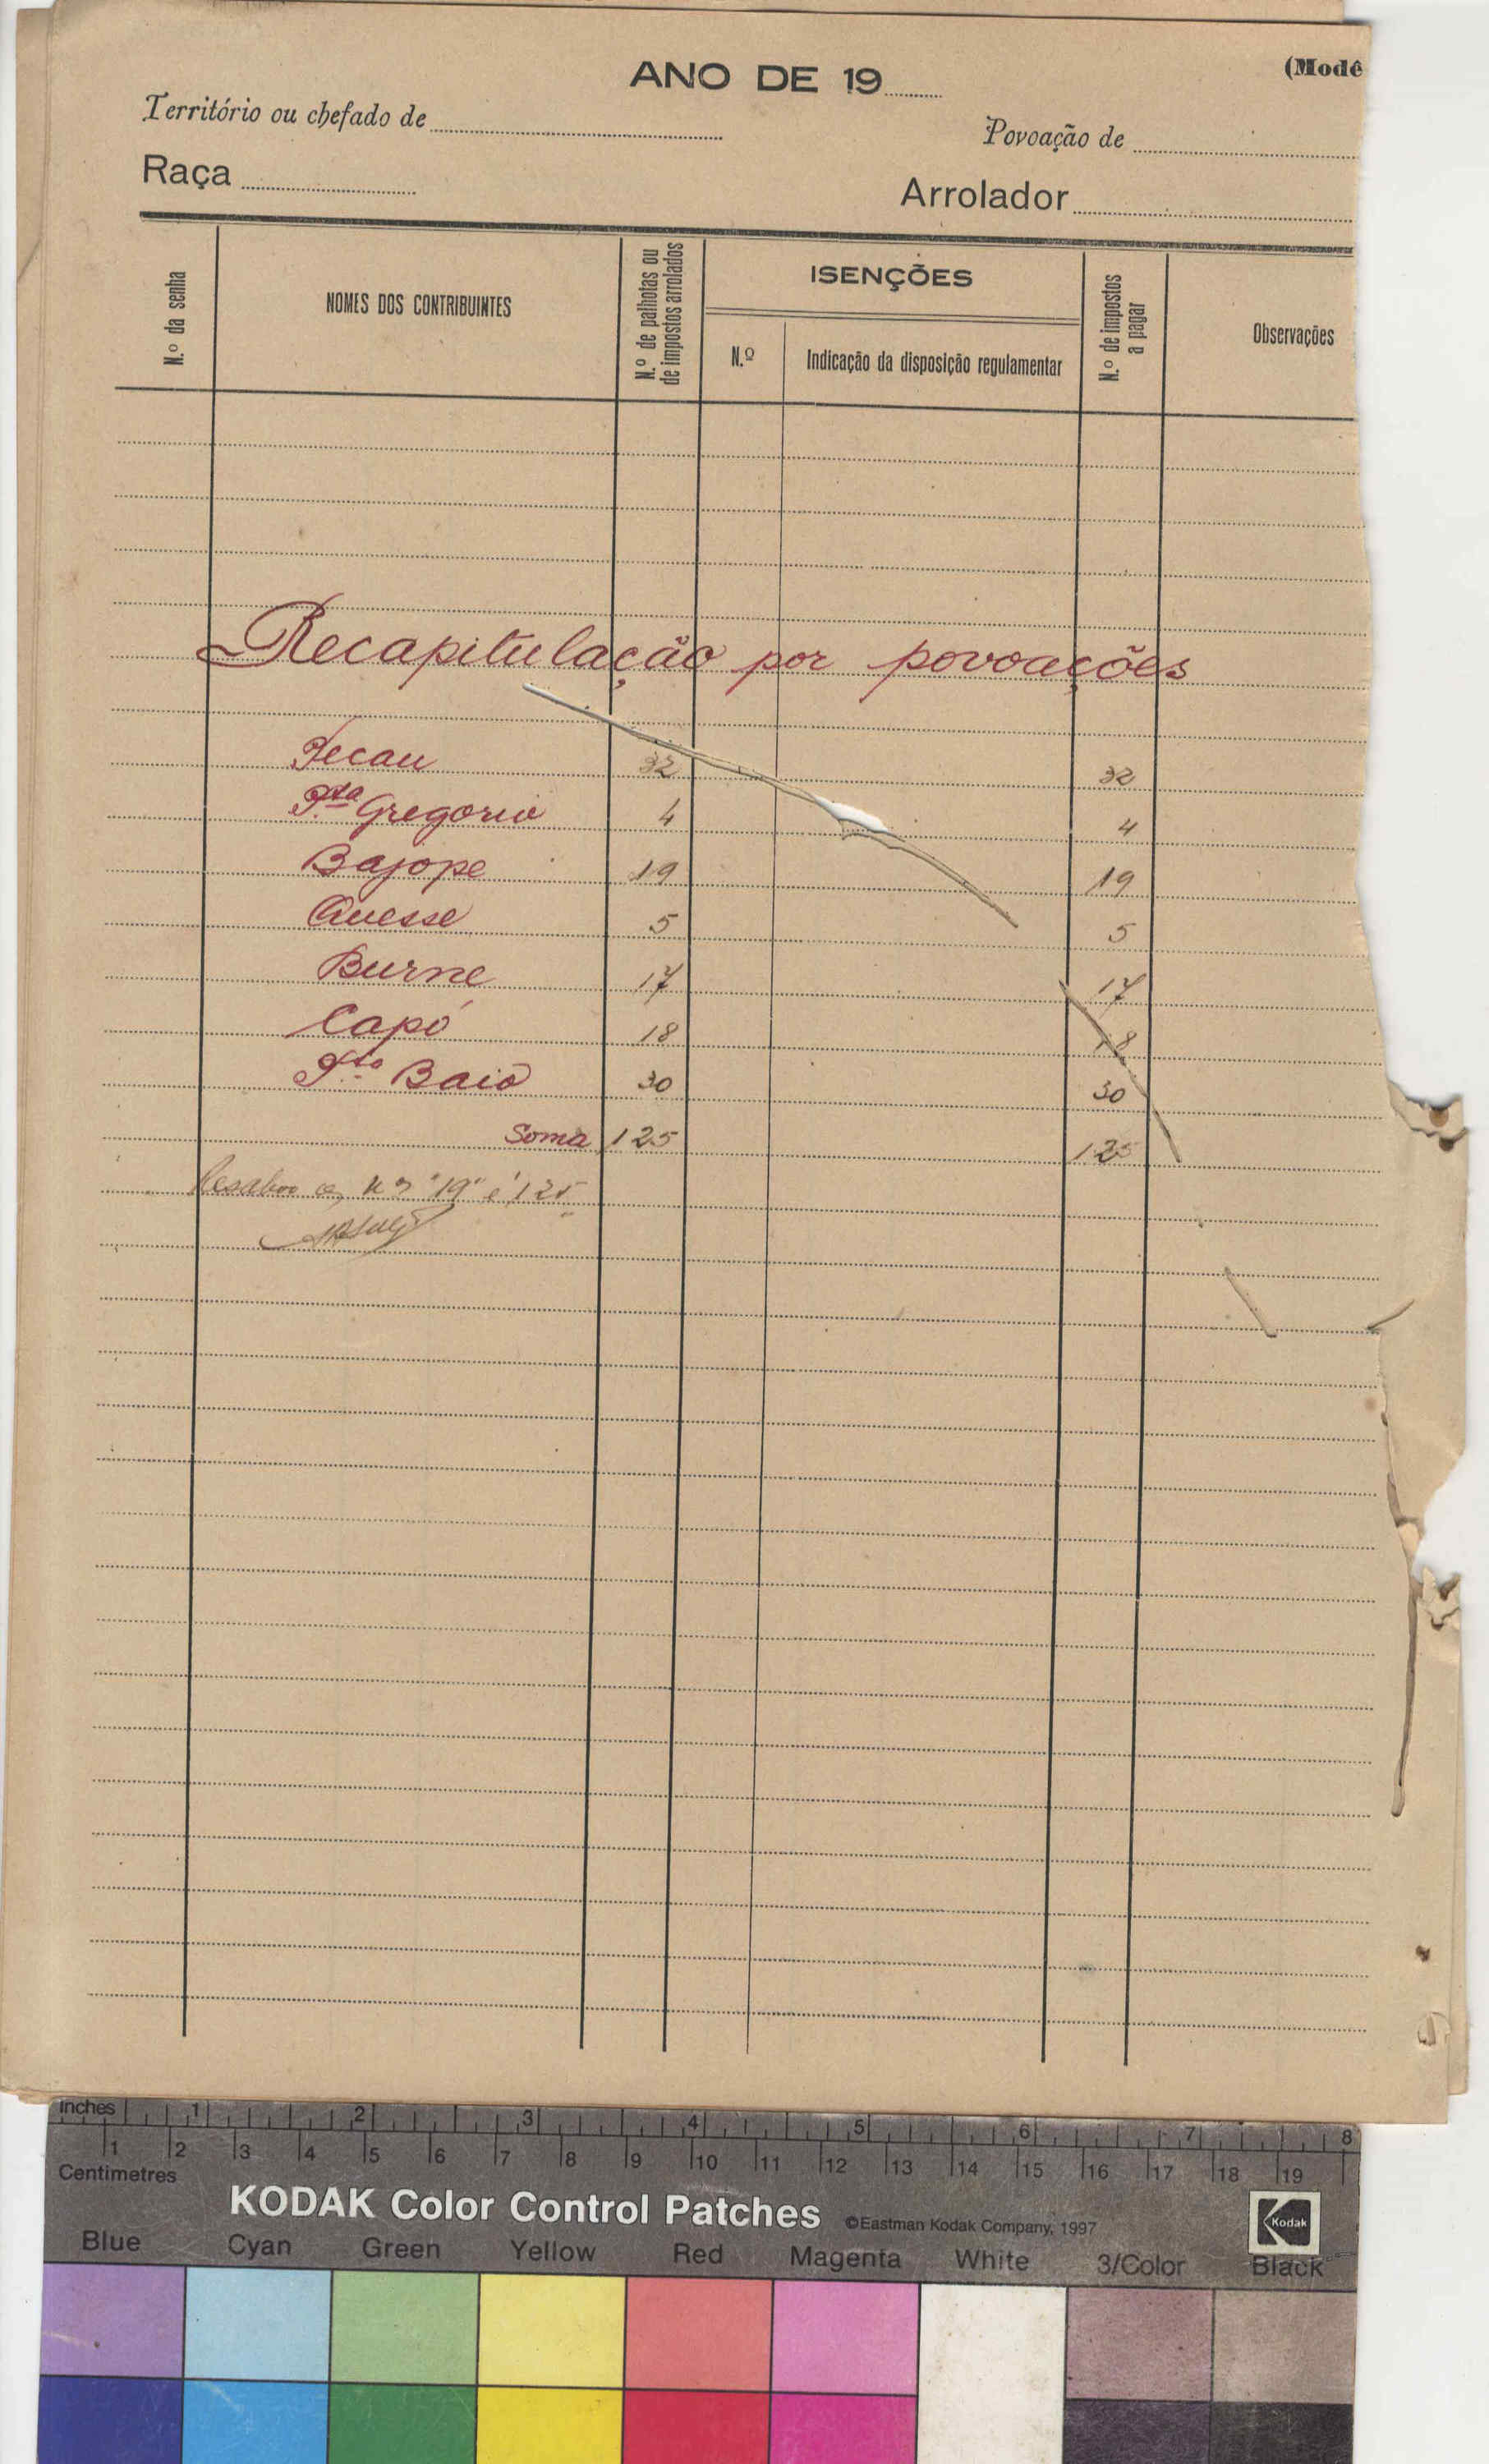 ANO DE 19
(Modê
Território ou chefado de
Povoação de
Raça
Arrolador
N.º da senha
NOMES DOS CONTRIBUINTES
N.º de palhotas ou de impostos arrolados
ISENÇÕES
N.º
Indicação da disposição regulamentar
N.º de impostos a pagar
Observações
Recapitulação por povoações
Pecau 32 32
P.ta Gregorio 4 4
Bajope 19 19
Quesse 5 5
Burne 17 17
Capó 18 18
30 30
Baio
Soma 125 125
"19" é 125
Inches 1 2 3 4 5 6 7 8
1 2 3 4 5 6 7 8 9 10 11 12 13 14 15 16 17 18 19
Centimetres
KODAK Color Control Patches ©Eastman Kodak Company, 1997 Kodak
Blue Cyan Green Yellow Red Magenta White 3/Color Black